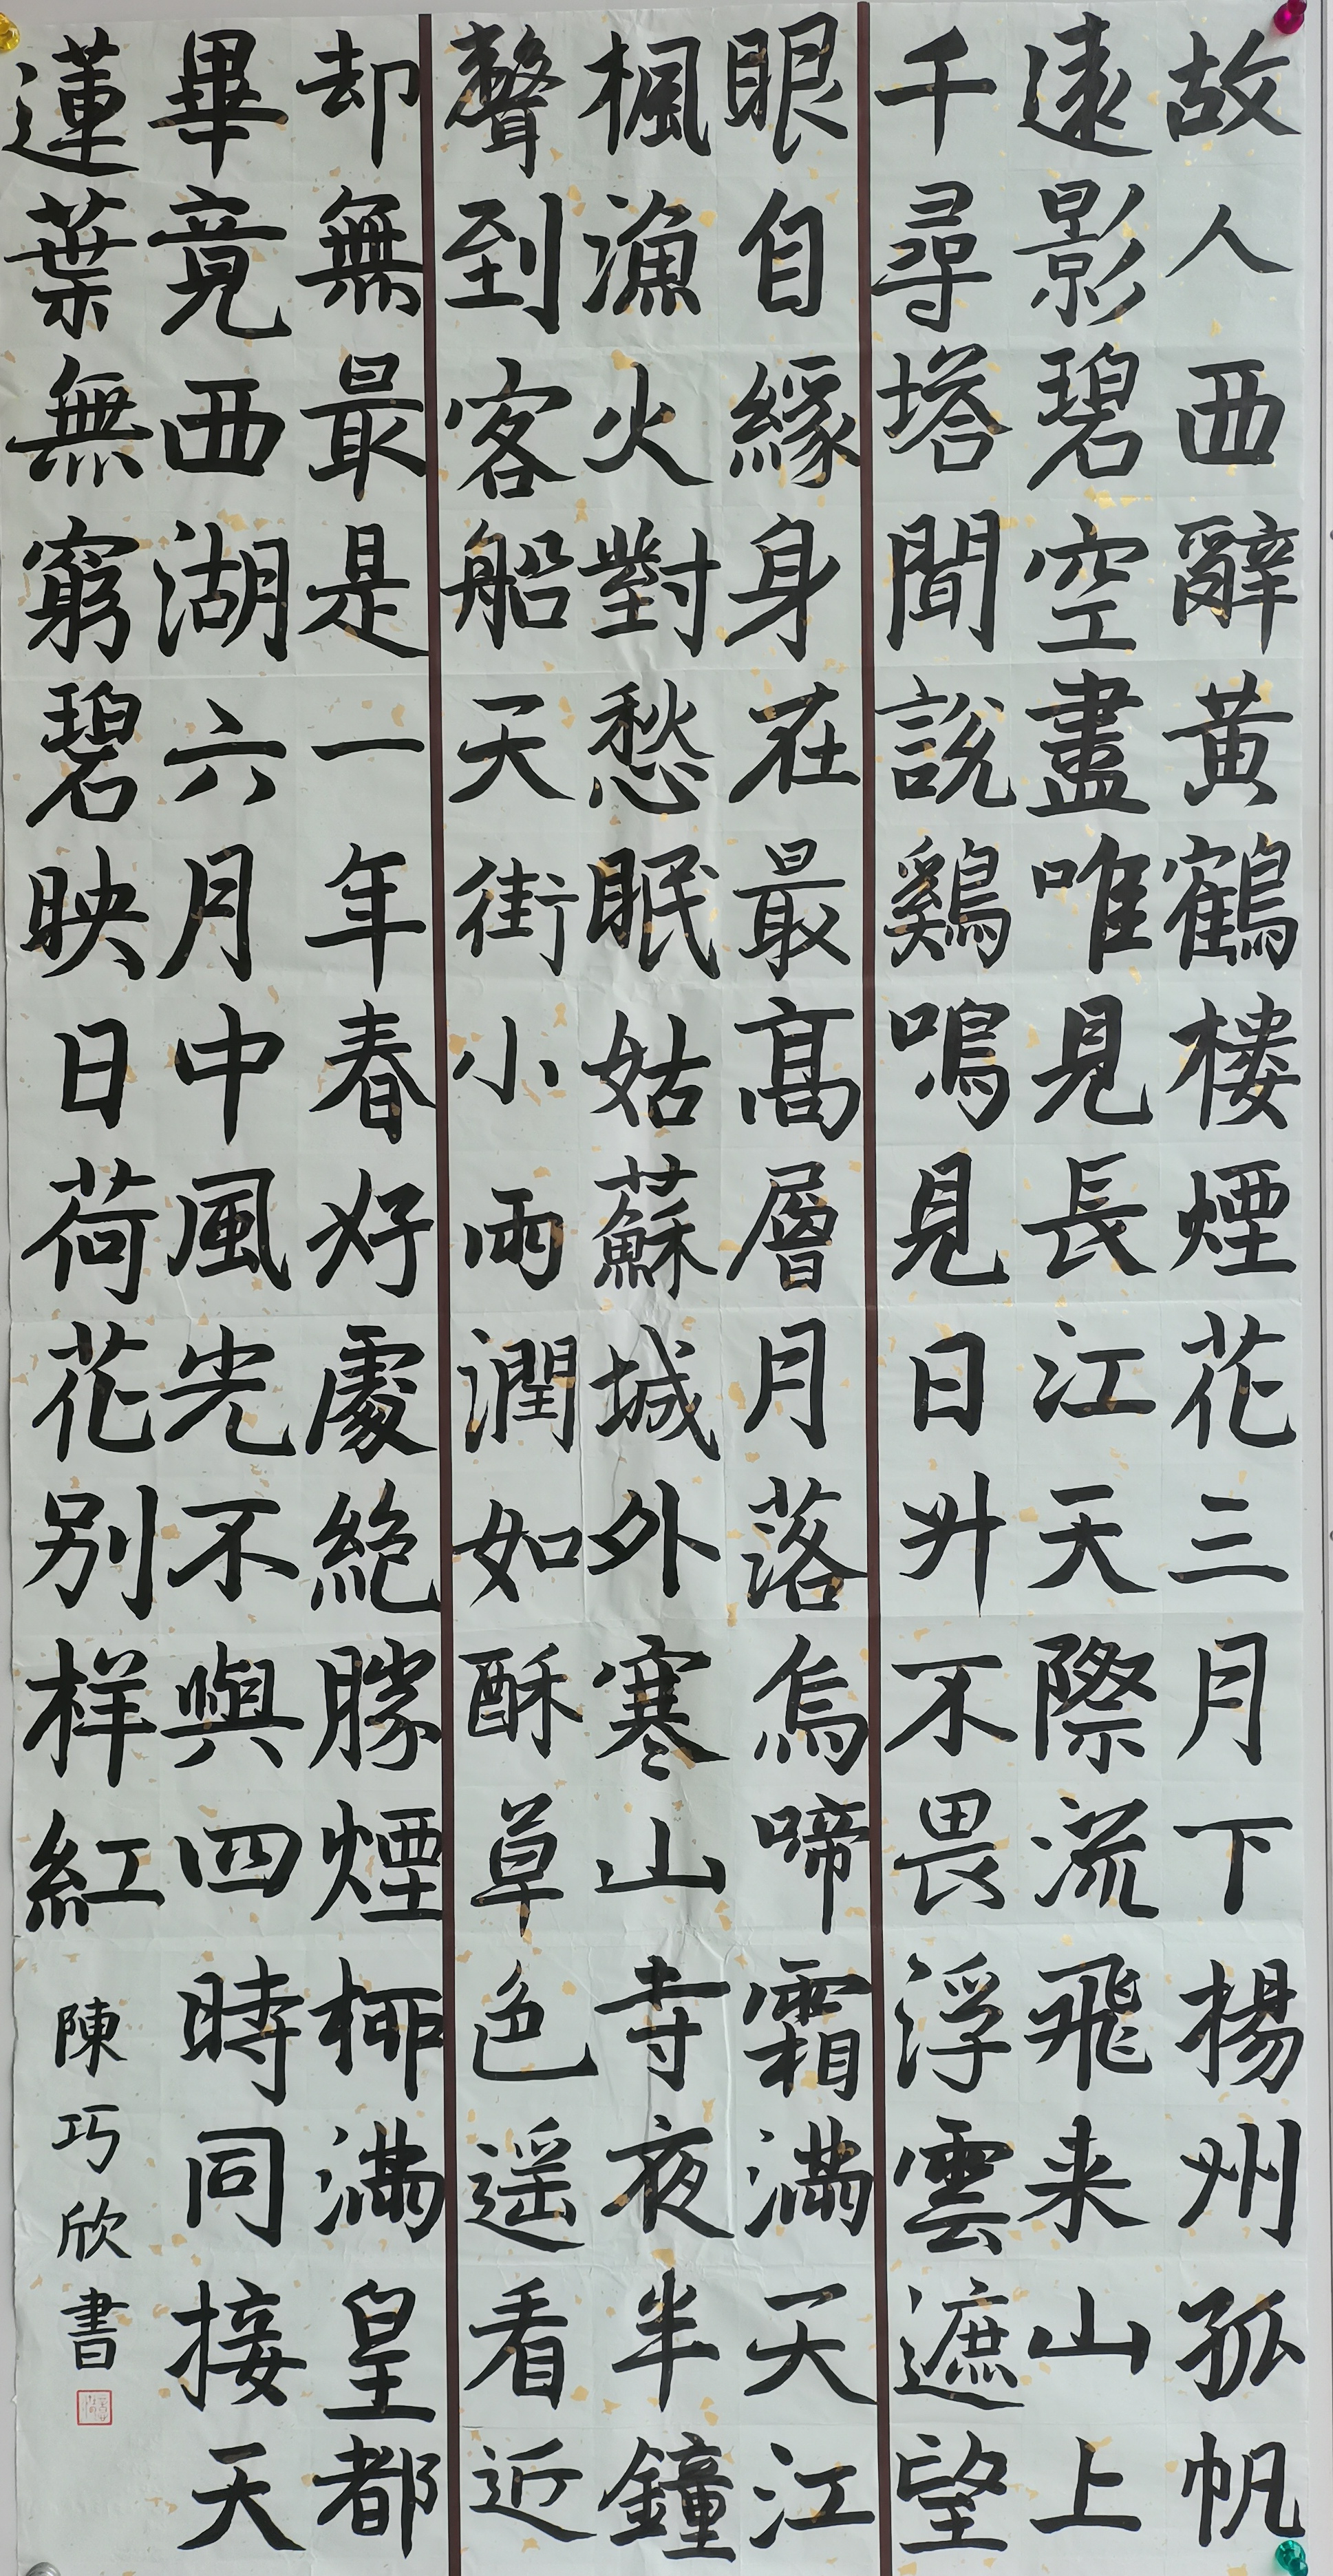 故人西辭黃鶴樓煙花三月下揚州孤帆
遠影碧空盡唯見長江天際流飛来山上
千尋塔聞說鷄鳴見日升不畏浮雲遮望
眼自緣身在最高層月落烏啼霜滿天江
楓漁火對愁眠姑蘇城外寒山寺夜半鐘
聲到客船天街小雨潤如酥草色遥看近
却無最是一年春好處絕勝煙柳滿皇都
畢竟西湖六月中風光不與四時同接天
蓮葉無窮碧映日荷花别样紅
陳巧欣書